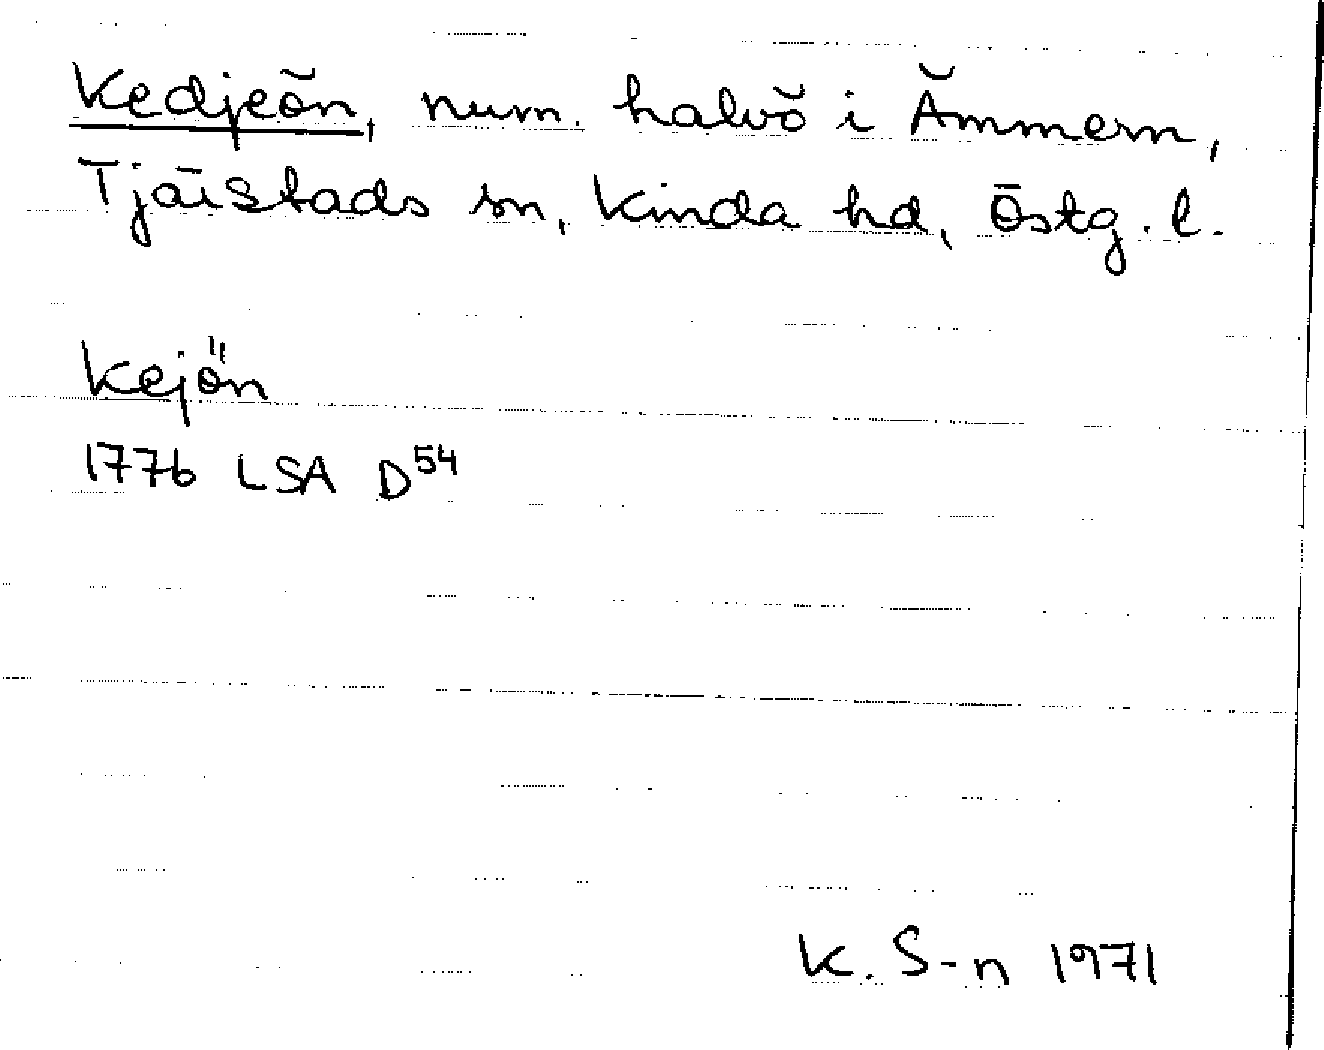 Kedjeön, num. halvö i Ämmern,
Tjärstads sn, Kinda hd, Östg. l.
Kejön
1776 LSA D54
K. S-n 1971